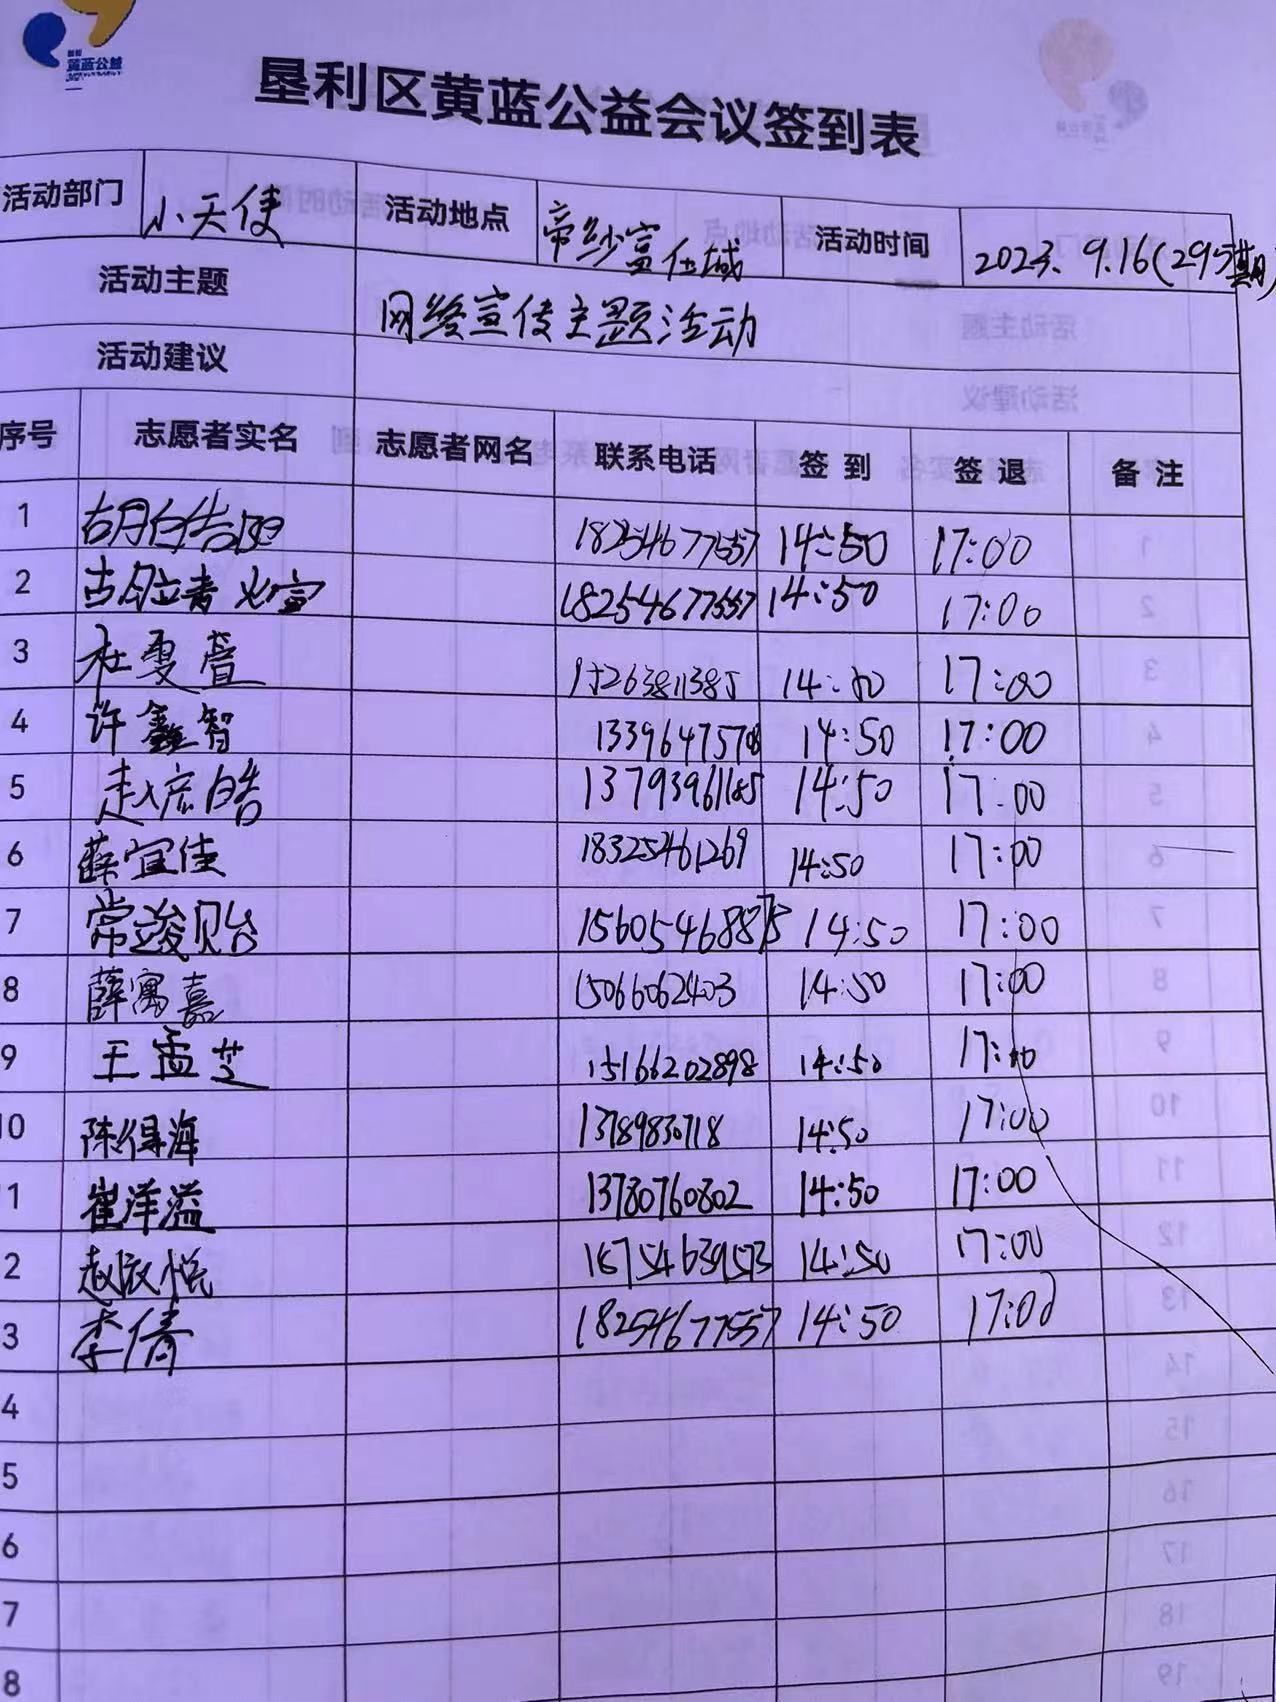 黄蓝公益
垦利区黄蓝公益会议签到表
活动部门 小天使 活动地点 活动时间 2023.9.16(295期)
活动主题 网络宣传主题活动
活动建议
序号 志愿者实名 志愿者网名 联系电话 签到 签退 备注
1 胡皓阳 18254677557 14:50 17:00
2 18254677557 14:50 17:00
3 杜雯萱 15263811385 14:50 17:00
4 许鑫智 13396475708 14:50 17:00
5 赵宏皓 13793961185 14:50 17:00
6 薛宜佳 18325461269 14:50 17:00
7 常竣贻 15605468875 14:50 17:00
8 薛寓嘉 15066062403 14:50 17:00
9 王孟芝 15166202898 14:50 17:00
10 陈得海 13789830718 14:50 17:00
1 崔洋溢 13780760802 14:50 17:00
2 赵依悦 18754639573 14:50 17:00
3 李倩 18254677557 14:50 17:00
4
5
6
7
8